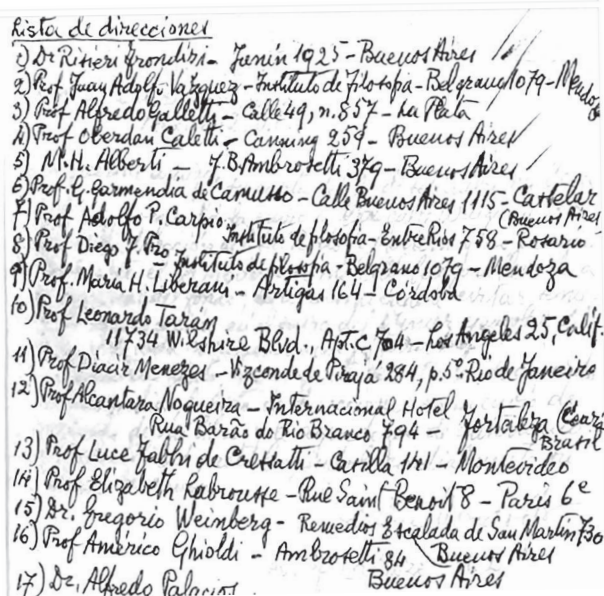 Lista de direcciones
1) Dr Risieri Frondizi - Junín 1925 - Buenos Aires
2) Prof. Juan Adolfo Vázquez - Instituto de Filosofía - Belgrano 1079 - Mendoza
3) Prof Alfredo Galletti - Calle 49, n. 857 - La Plata
4) Prof Oberdan Caletti - Canning 259 - Buenos Aires
5) M. H. Alberti - J. B. Ambrosetti 379 - Buenos Aires
6) Prof. G. Garmendia de Camusso - Calle Buenos Aires 1115 - Castelar
(Buenos Aires
7) Prof Adolfo P. Carpio Instituto de filosofía - Entre Ríos 758 - Rosario
8) Prof Diego F. Pro - Instituto de filosofía - Belgrano 1079 - Mendoza
9) Prof. María H. Liberani - Artigas 164 - Córdoba
10) Prof Leonardo Tarán
11734 Wilshire Blvd., Apt. C, 704 - Los Angeles 25, Calif.
11) Prof Djacir Menezes - Vizconde de Pirajá 284, p. 5º - Rio de Janeiro
12) Prof Alcantara Nogueira - Internacional Hotel
Rua Barão do Rio Branco 794 - Fortaleza (Ceará
Brasil
13) Prof Luce Fabbri de Cressatti - Casilla 141 - Montevideo
14) Prof Elizabeth Labrousse - Rue Saint Benoit 8 - Paris 6e
15) Dr. Gregorio Weinberg - Remedios Escalada de San Martín 730
Buenos Aires
16) Prof Américo Ghioldi - Ambrosetti 84
Buenos Aires
17) Dr. Alfredo Palacios